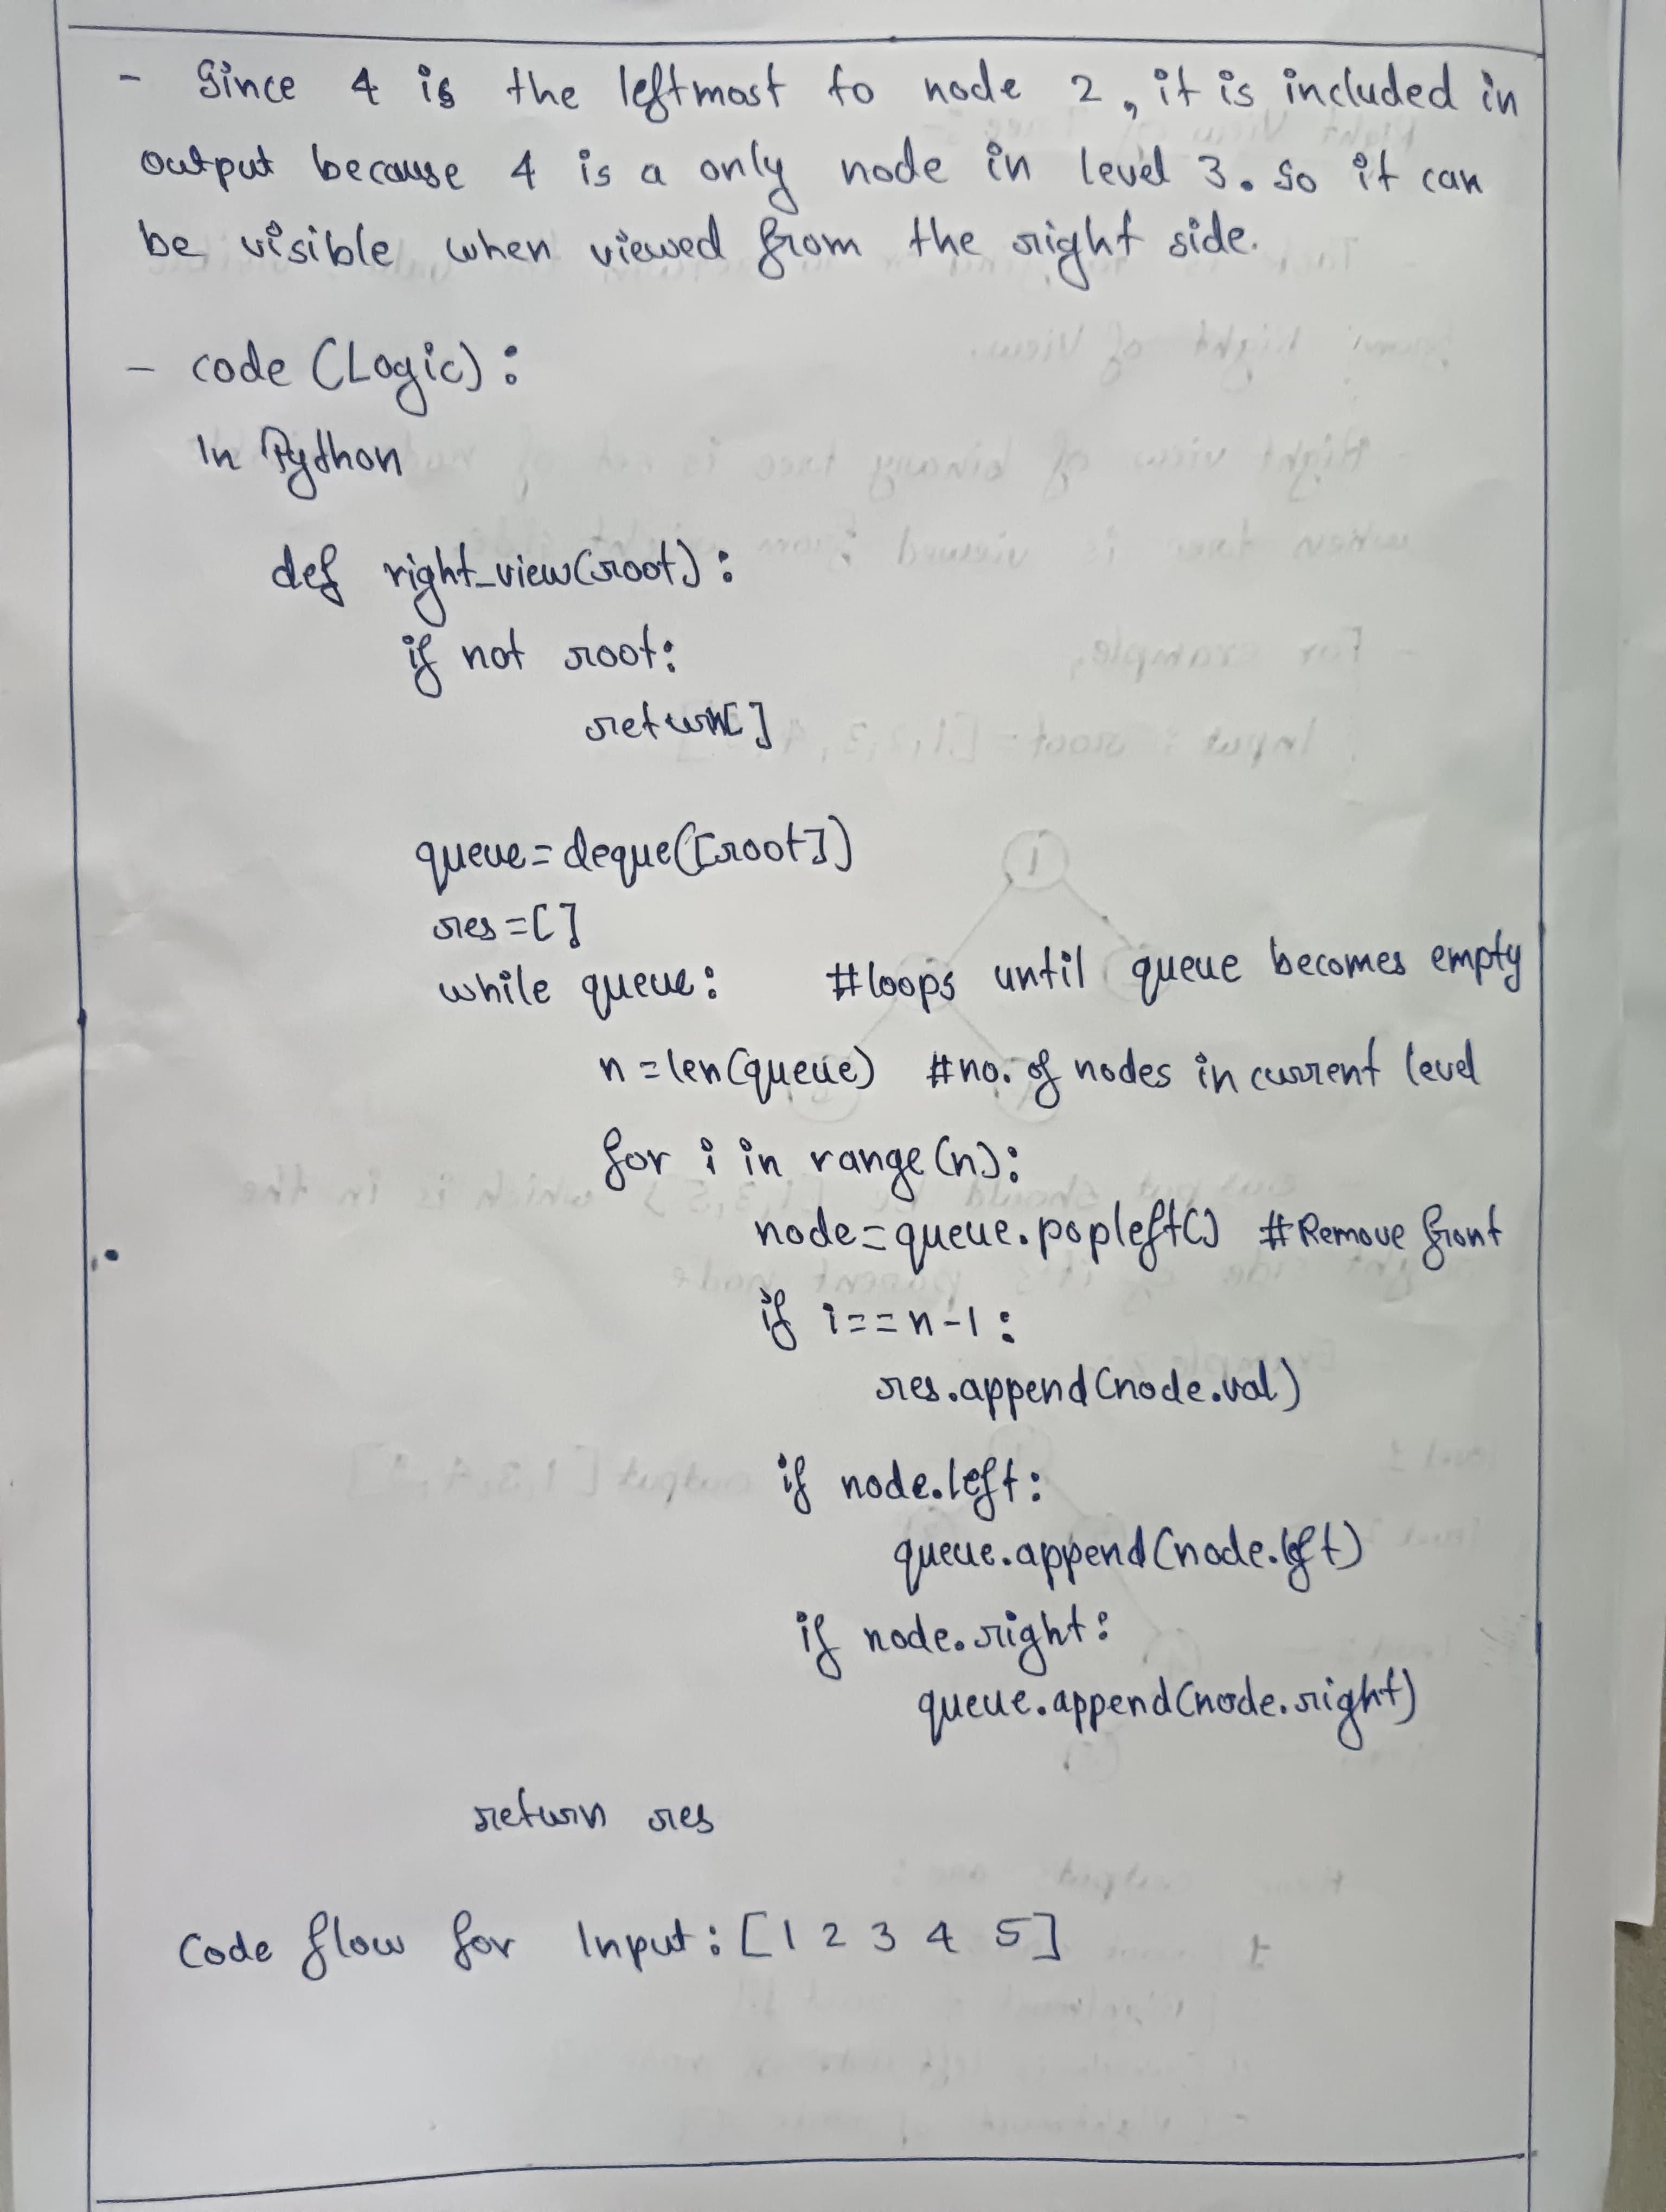 - Since 4 is the leftmost to node 2, it is included in
output because 4 is a only node in level 3. So it can
be visible when viewed from the right side.
- code (Logic):
In Python
def right_view(root):
if not root:
return[]
queue=deque([root])
res=[]
while queue: #loops until queue becomes empty
n=len(queue) #no. of nodes in current level
for i in range(n):
node=queue.popleft() #Remove front
if i==n-1:
res.append(node.val)
if node.left:
queue.append(node.left)
if node.right:
queue.append(node.right)
return res
Code flow for Input: [1 2 3 4 5]